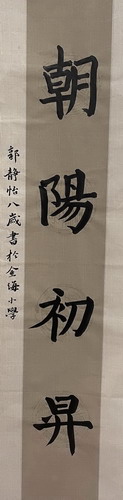 朝陽初昇
郭靜怡八歲書於金海小學